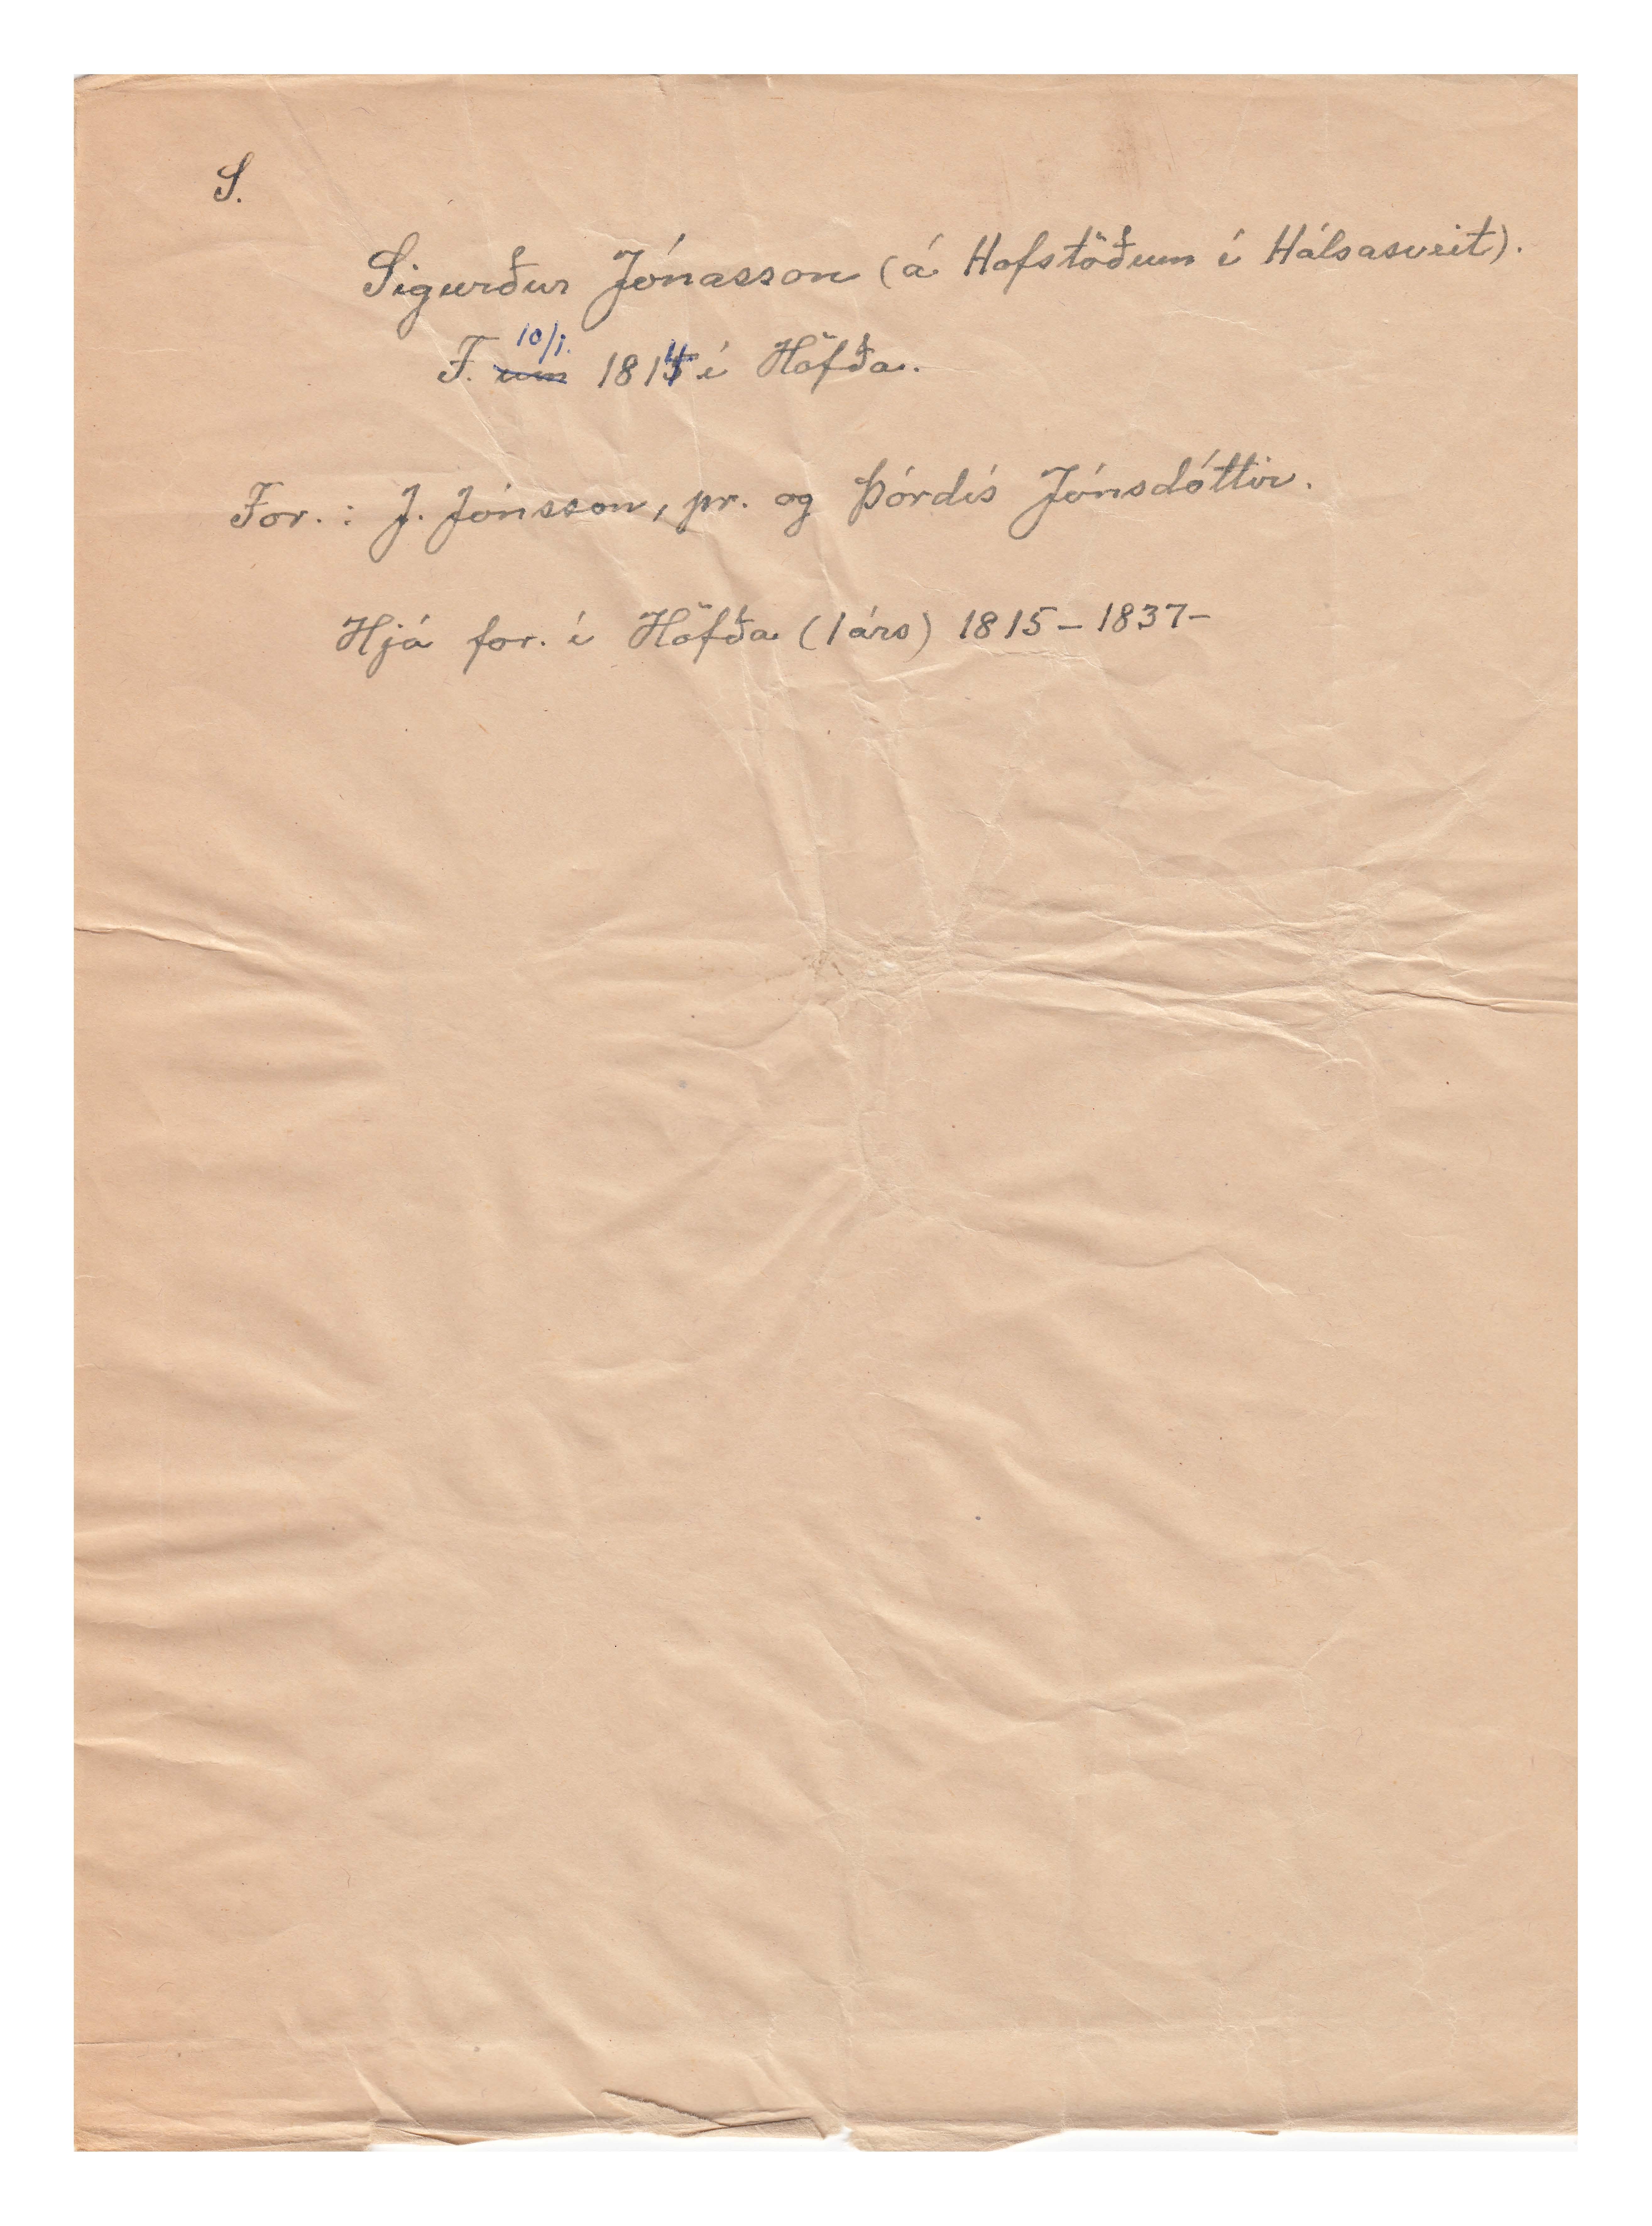 S.
Sigurður Jónasson (á Hofstöðum í Hálsasveit).
F. 10/1. 1814 í Höfða.
For.: J. Jónsson, pr. og Þórdís Jónsdóttir.
Hjá for. í Höfða (1 árs) 1815 - 1837 -